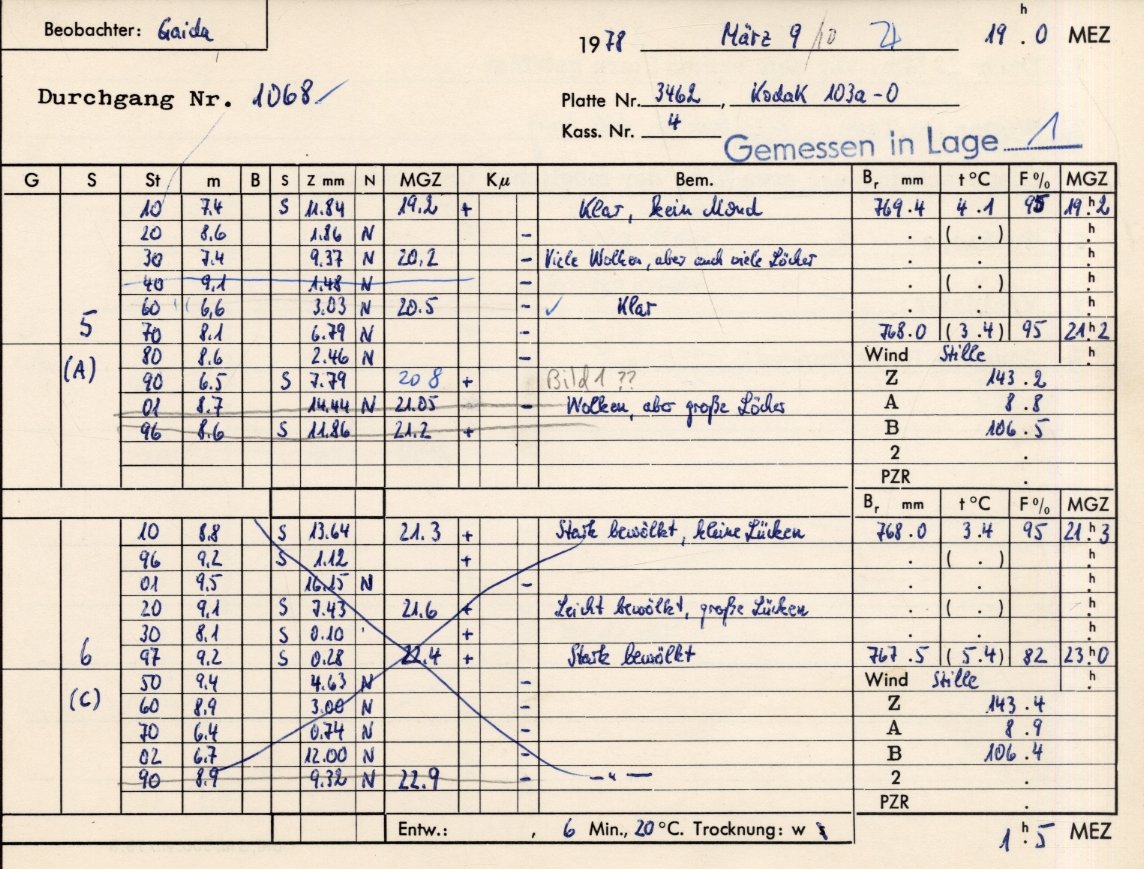 Beobachter: Gaida
1978 März 9/10 19 h . 0 MEZ
Durchgang Nr. 1068
Platte Nr. 3462, Kodak 103a-O
Kass. Nr. 4
Gemessen in Lage 1
G S St m B S Z mm N MGZ Kµ Bem. Br mm t°C F% MGZ
10 7.4 S 11.84 19.2 + Klar, kein Mond 769.4 4.1 95 19 h . 2
20 8.6 1.86 N - . ( . ) h .
30 7.4 9.37 N 20,2 - Viele Wolken, aber auch viele Löcher . . h .
40 9.1 1.48 N - . ( . ) h .
60 6,6 3.03 N 20.5 - ✓ Klar . . h .
5 70 8.1 6.79 N - 768.0 (3.4) 95 21 h . 2
(A) 80 8.6 2.46 N - Wind Stille h .
90 6.5 S 7.79 20 8 + Bild 1 ?? Z 143.2
01 8.7 14.44 N 21.05 - Wolken, aber große Löcher A 8.8
96 8.6 S 11.86 21.2 + B 106.5
2 .
PZR .
Br mm t°C F% MGZ
10 8.8 S 13.64 21.3 + Stark bewölkt, kleine Lücken 768.0 3.4 95 21 h . 3
96 9.2 S 1.12 + . ( . ) h .
01 9.5 16.15 N - . . h .
20 9.1 S 7.43 21.6 + Leicht bewölkt, große Lücken . ( . ) h .
30 8.1 S 0.10 + . . h .
6 97 9.2 S 0.28 22.4 + Stark bewölkt 767.5 (5.4) 82 23 h . 0
(C) 50 9.4 4.63 N - Wind Stille h .
60 8.9 3.00 N - Z 143.4
70 6.4 0.74 N - A 8.9
02 6.7 12.00 N - B 106.4
90 8.9 9.32 N 22.9 - — " — 2 .
PZR .
Entw.: , 6 Min., 20 °C. Trocknung: w 1 h . 5 MEZ